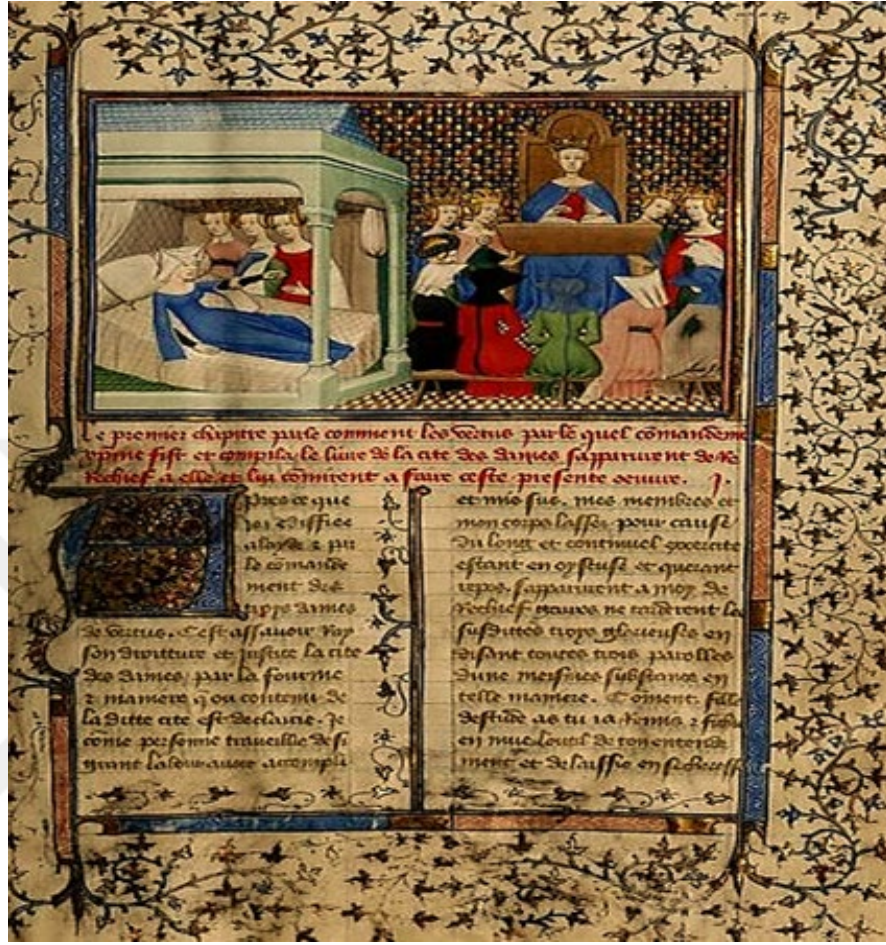 Le premier chapitre parle coment les vertus par le quel comandeme
xpine fist et compila le liure de la cite des dames sapparurent de Re
Rechief a elle et lui comirent a faire ceste presente oeuure. j.
pres ce que
ie
a par
le comande
ment des
troys dames
de vertus. Cest assauoir Ray
son droitture et justice la cite
des dames par la fourme
z maniere q ou contenu de
la ditte cite est declairie. Je
come personne trauaillie de si
grant labour auoir acompli
et mis sus. mes membres et
mon corps lasses pour cause
du long et continuel excercite
estant en oyseuse et querant
repos. sapparurent a moy de
Rechief ne tarderent les
susdittes troys glorieuses en
disant toutes trois parolles
dune meismes substance en
telle maniere. Coment fille
destude as tu ia Remis z
en mue loutil de ton entende
ment et delaissie en